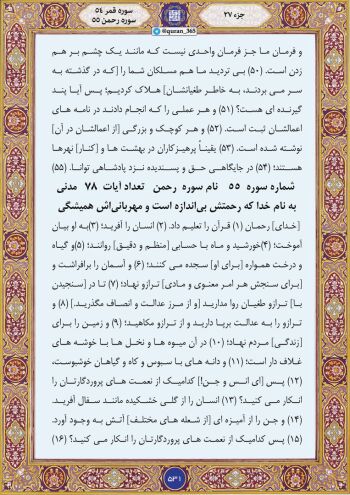 جزء ۲۷
سوره قمر ۵۴
سوره رحمن ۵۵
@quran_365
و فرمان ما جز فرمان واحدی نیست که مانند یک چشم بر هم
زدن است. (۵۰) بی تردید ما هم مسلکان شما را [که در گذشته به
سر می بردند، به خاطر طغیانشان] هلاک کردیم؛ پس آیا پند
گیرنده ای هست؟ (۵۱) و هر عملی را که انجام دادند در نامه های
اعمالشان ثبت است. (۵۲) و هر کوچک و بزرگی [از اعمالشان در آن]
نوشته شده است. (۵۳) یقیناً پرهیزکاران در بهشت ها و [کنار] نهرها
هستند؛ (۵۴) در جایگاهی حق و پسندیده نزد پادشاهی توانا. (۵۵)
شماره سوره ۵۵ نام سوره رحمن تعداد آیات ۷۸ مدنی
به نام خدا که رحمتش بی‌اندازه است و مهربانی‌اش همیشگی
[خدای] رحمان (۱) قرآن را تعلیم داد. (۲) انسان را آفرید؛ (۳)به او بیان
آموخت؛ (۴)خورشید و ماه با حسابی [منظم و دقیق] روانند؛ (۵)و گیاه
و درخت همواره [برای او] سجده می کنند؛ (۶) و آسمان را برافراشت و
[برای سنجش هر امر معنوی و مادی] ترازو نهاد؛ (۷) تا در [سنجیدن
با] ترازو طغیان روا مدارید [و از مرز عدالت و انصاف مگذرید.] (۸) و
ترازو را به عدالت برپا دارید و از ترازو مکاهید؛ (۹) و زمین را برای
[زندگی] مردم نهاد؛ (۱۰) در آن میوه ها و نخل ها با خوشه های
غلاف دار است؛ (۱۱) و دانه های با سبوس و کاه و گیاهان خوشبوست،
(۱۲) پس [ای انس و جن!] کدامیک از نعمت های پروردگارتان را
انکار می کنید؟ (۱۳) انسان را از گلی خشکیده مانند سفال آفرید.
(۱۴) و جن را از آمیزه ای [از شعله های مختلف] آتش به وجود آورد.
(۱۵) پس کدامیک از نعمت های پروردگارتان را انکار می کنید؟ (۱۶)
۵۳۱